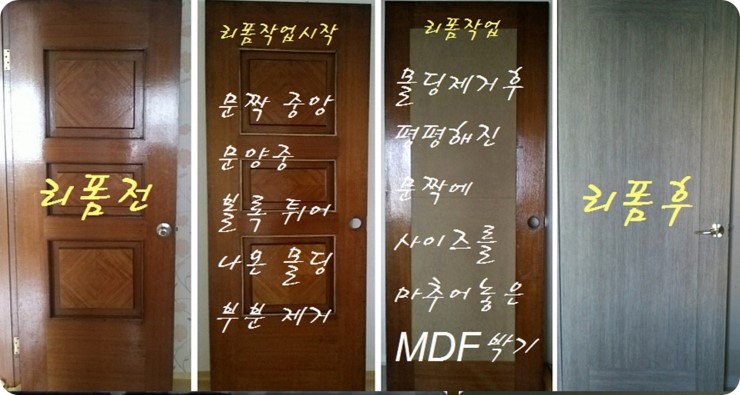 리폼전
리폼작업시작
문짝 중앙
문양중
볼록 튀어
나온 몰딩
부분 제거
리폼작업
몰딩제거후
평평해진
문짝에
사이즈를
마추어놓은
MDF박기
리폼후